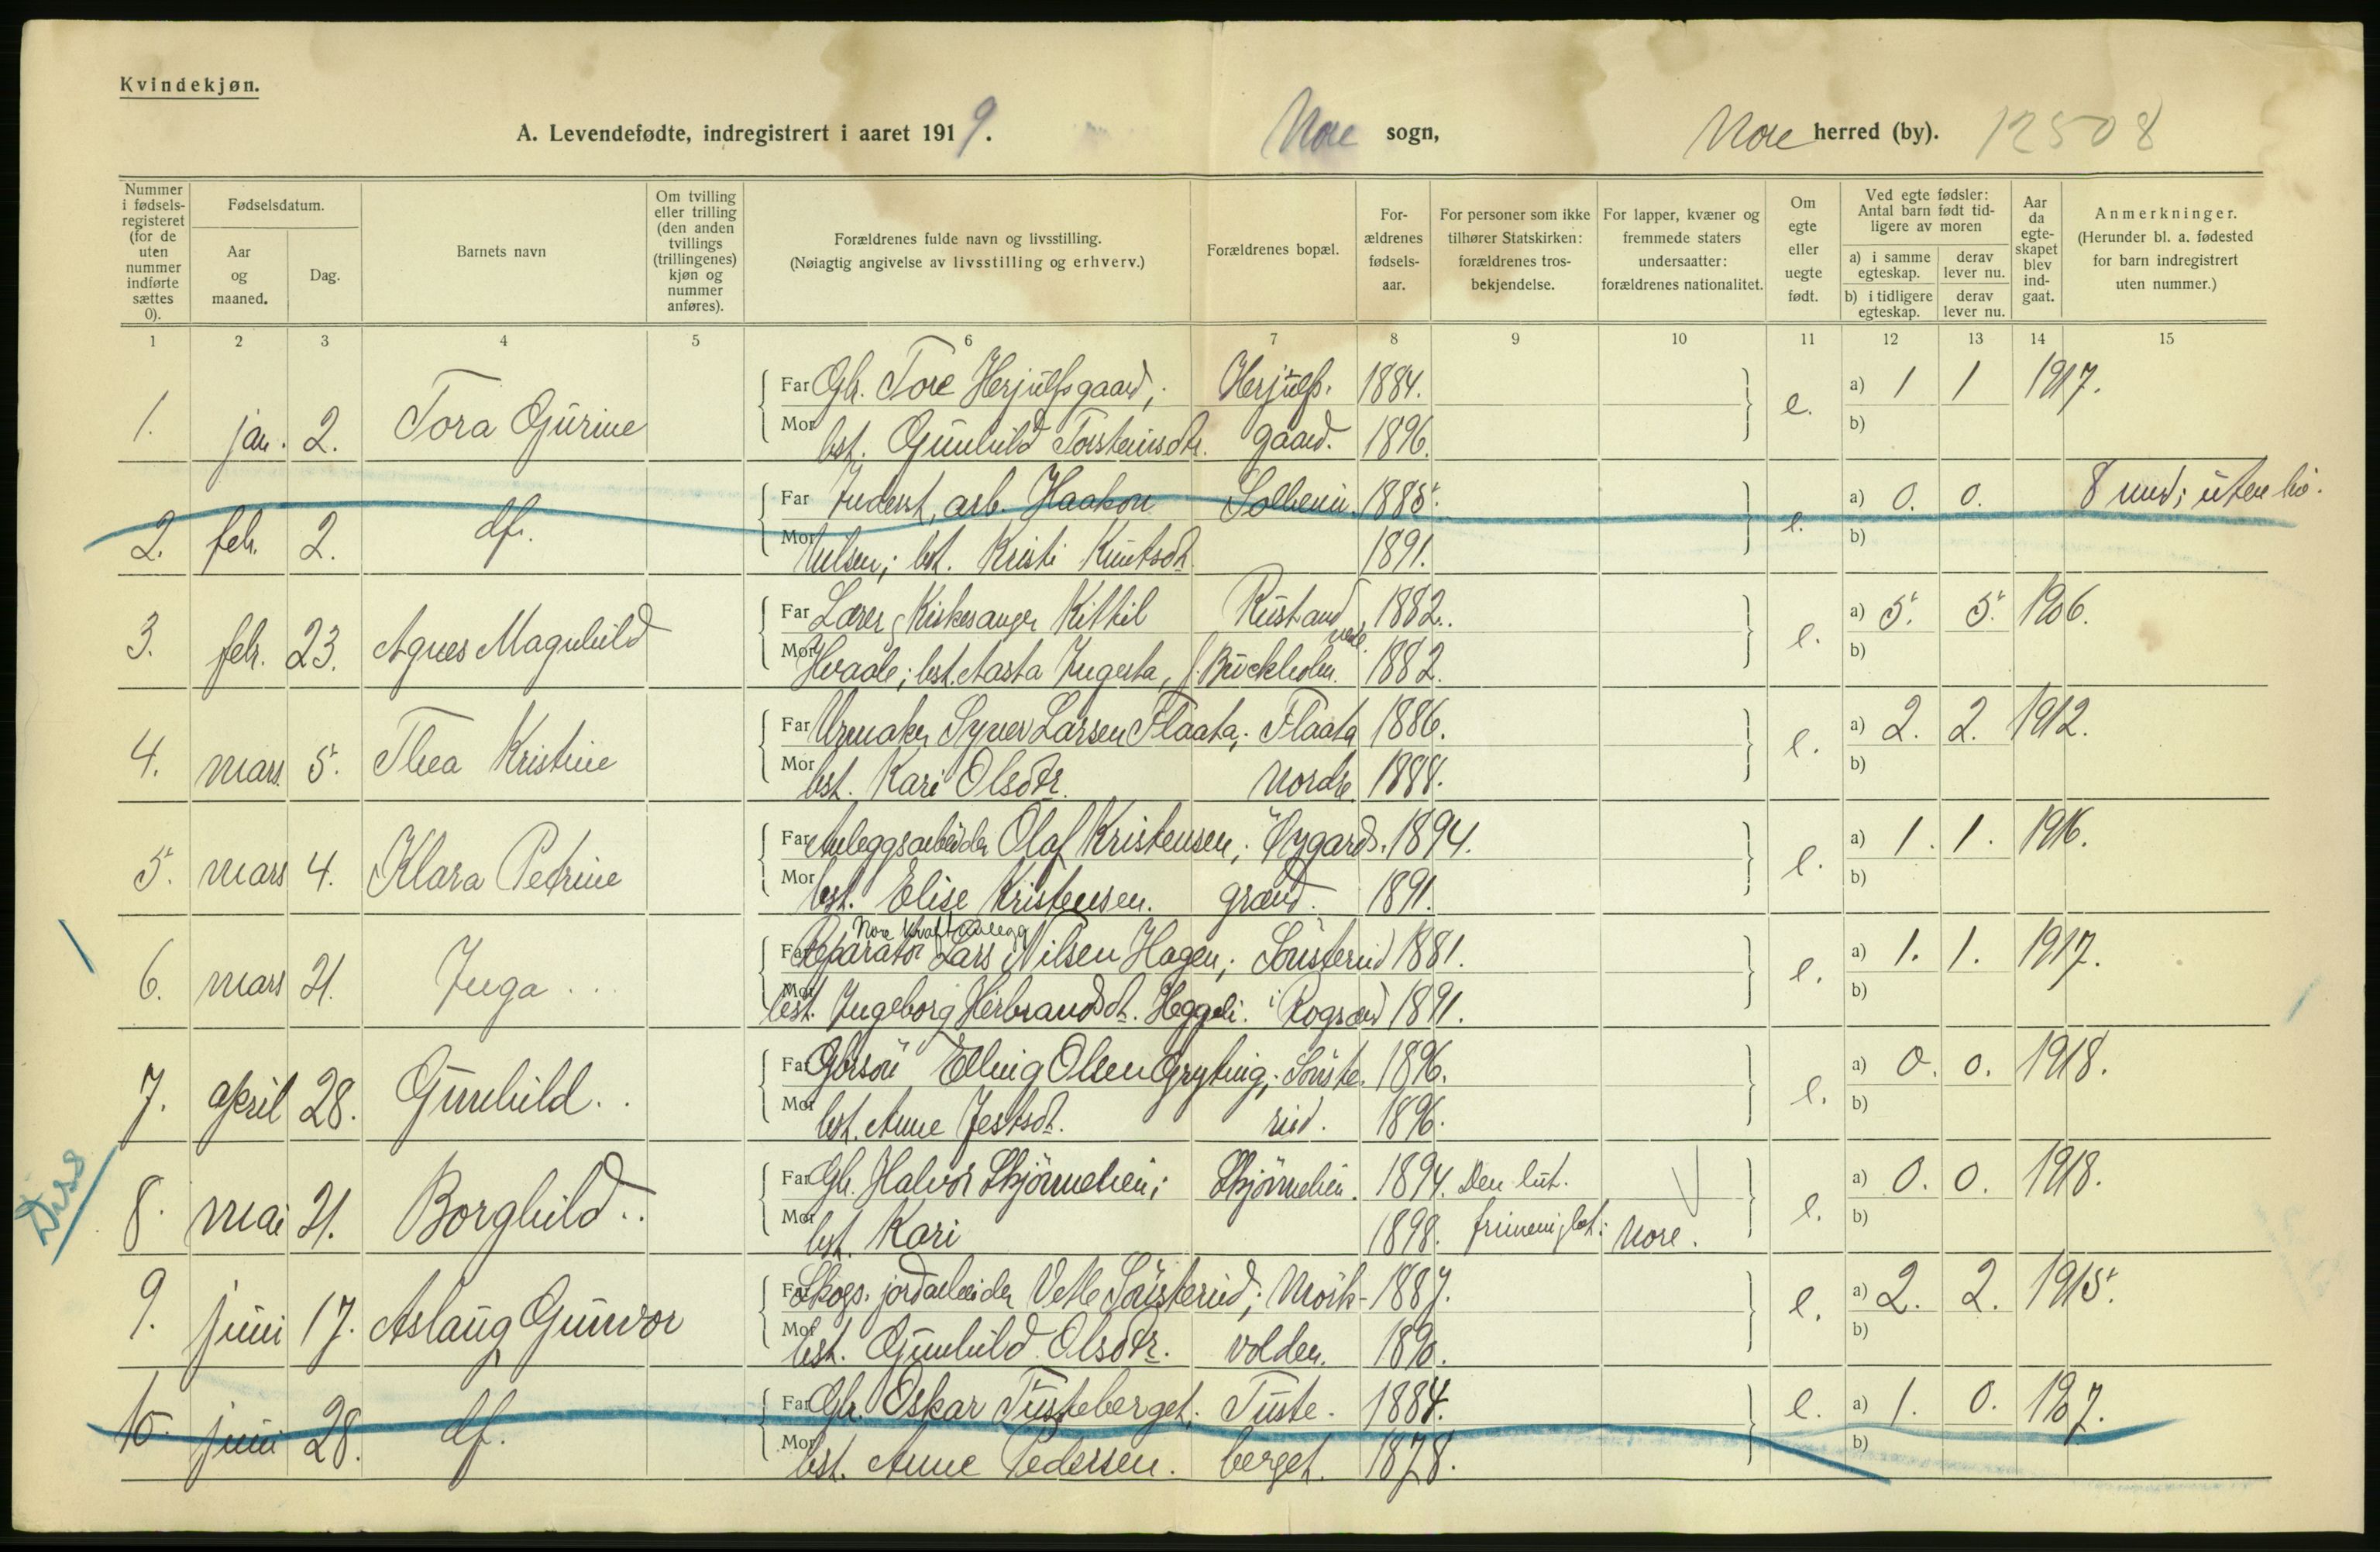 Kvindekjøn.
A. Levendefødte, indregistrert i aaret 1919. Nore sogn, Nore herred (by). 12508
Nummer i fødsels-registeret (for de uten nummer indførte sættes 0).
Fødselsdatum.
Aar og maaned.
Dag.
Barnets navn
Om tvilling eller trilling (den anden tvillings (trillingenes) kjøn og nummer anføres).
Forældrenes fulde navn og livsstilling.
(Nøiagtig angivelse av livsstilling og erhverv.)
Forældrenes bopæl.
For-ældrenes fødsels-aar.
For personer som ikke tilhører Statskirken: forældrenes tros-bekjendelse.
For lapper, kvæner og fremmede staters undersaatter: forældrenes nationalitet.
Om egte eller uegte født.
Ved egte fødsler: Antal barn født tid-ligere av moren
a) i samme egteskap.
derav lever nu.
b) i tidligere egteskap.
derav lever nu.
Aar da egte-skapet blev ind-gaat.
Anmerkninger.
(Herunder bl. a. fødested for barn indregistrert uten nummer.)
1 2 3 4 5 6 7 8 9 10 11 12 13 14 15
Far Gbr. Tore Herjulfsgaard; Herjulfs- 1884. a) 1 1 1917.
1. jan. 2. Tora Gurine e.
Mor hst. Gunhild Torsteinsdtr. gaard. 1896. b)
Far Inderst, arb. Haakon 1885. a) 0. 0. 8 mnd; uten liv.
2. febr. 2. df. e.
Mor Nilsen; hst. Kristi Knutsdt. 1891. b)
Far Lærer, Kirkesanger Kittil Rustand 1882. a) 5. 5. 1906.
3. febr. 23. Agnes Magnhild nedr. e.
Mor Hvaale; hst. Aasta Ingerta, f. Buckholm. 1882. b)
Far Urmaker Syver Larsen Flaata; Flaata 1886. a) 2. 2. 1912.
4. mars 5. Thea Kristine e.
Mor hst. Kari Olsdtr. nordre 1888. b)
Far Anleggsarbeider Olaf Kristensen; Nygards- 1894. a) 1. 1. 1916.
5. mars 4. Klara Petrine e.
Mor hst. Elise Kristensen. grænd. 1891. b)
Nore kraftanlegg
Far Reparatør Lars Nilsen Hagen; Sønsterud 1881. a) 1. 1. 1917.
6. mars 21. Inga . . . e.
Mor hst. Ingeborg Herbrandsdt. Heggeli. i Rogrænd 1891. b)
Far Gbrsøn Elling Olsen Gryting; Sønste- 1896. a) 0. 0. 1918.
7. april 28. Gunhild . . e.
Mor hst. Anne Jestsdt. rud. 1896. b)
Diss
Far Gbr. Halvor Skjønnelien; Skjønnelien. 1894. Den lut. a) 0. 0. 1918.
8. mai 21. Borghild . . e.
Mor hst. Kari 1898. frimenighet i Nore. b)
Far Skogs. jordarbeider Vetle Sønsterud; Mørk- 1887. a) 2. 2. 1915.
9. juni 17. Aslaug Gunvor e.
Mor hst. Gunhild Olsdtr. volden. 1890. b)
Far Gbr. Oskar Tusteberget. Tuste- 1884. e. a) 1. 0. 1907.
10. juni 28. df.
Mor hst. Anne Pedersen. berget. 1878. b)